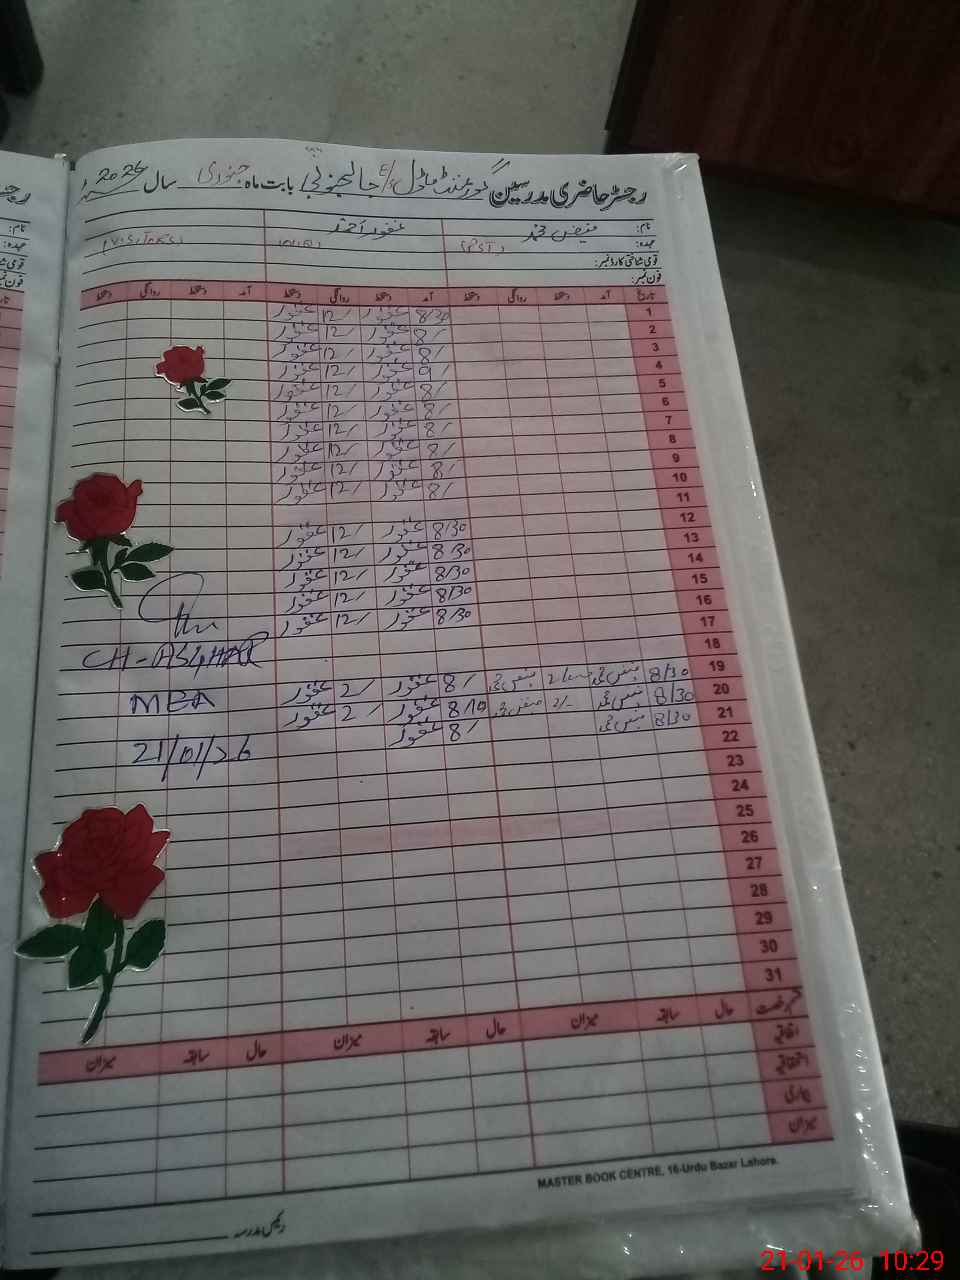 رجسٹر حاضری مدرسین گورنمنٹ ماڈل بابت ماہ جنوری سال 2026
نام: فیض محمد غفور احمد
عہدہ:
قومی شناختی کارڈ نمبر:
فون نمبر:
تاریخ آمد دستخط روانگی دستخط آمد دستخط روانگی دستخط آمد دستخط روانگی دستخط
1 8/30 غفور 12/ غفور
2 8/ غفور 12/ غفور
3 8/ غفور 12/ غفور
4 غفور 12/ غفور
5 8/ غفور 12/ غفور
6 8/ غفور 12/ غفور
7 8/ غفور 12/ غفور
8 8/ غفور 12/ غفور
9 8/ غفور 12/ غفور
10 8/ غفور 12/ غفور
11
12 8/30 غفور 12/ غفور
13 8/30 غفور 12/ غفور
14 8/30 غفور 12/ غفور
15 8/30 غفور 12/ غفور
16 8/30 غفور 12/ غفور
17
18
19 8/30 فیض محمد 2/ فیض محمد 8/ غفور 2/ غفور
20 8/30 فیض محمد 2/- فیض محمد 8/10 غفور 2/ غفور
21 8/30 فیض محمد 8/ غفور
22
23
24
25
26
27
28
29
30
31
CH-ASGHAR
MEA
21/01/26
قسم رخصت حال سابقہ میزان حال سابقہ میزان حال سابقہ میزان
اتفاقیہ
استحقاقیہ
بیماری
میزان
MASTER BOOK CENTRE, 16-Urdu Bazar Lahore.
رئیس مدرسہ
21-01-26 10:29